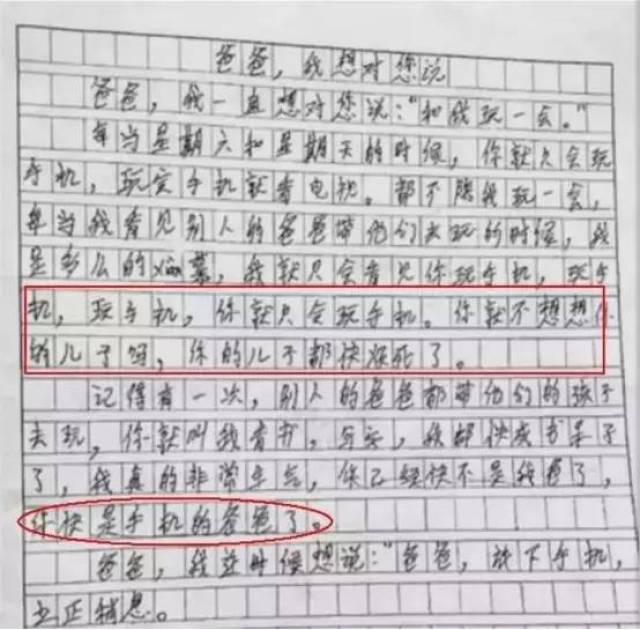 爸爸，我想对您说
爸爸，我一直想对您说："和我玩一会。"
每当星期六和星期天的时候，你就只会玩
手机，玩完手机就看电视。都不陪我玩一会，
每当我看见别人的爸爸带他们去玩的时候，我
是多么的xian慕，我就只会看见你玩手机，玩手
机，玩手机，你就只会玩手机。你就不想想你
的儿子吗，你的儿子都快烦死了。
记得有一次，别人的爸爸都带他们的孩子
去玩，你就叫我看书，写字，我都快成书呆子
了，我真的非常生气，你已经快不是我爸了，
你快是手机的爸爸了。
爸爸，我并时候想说："爸爸，放下手机，
立正稍息。